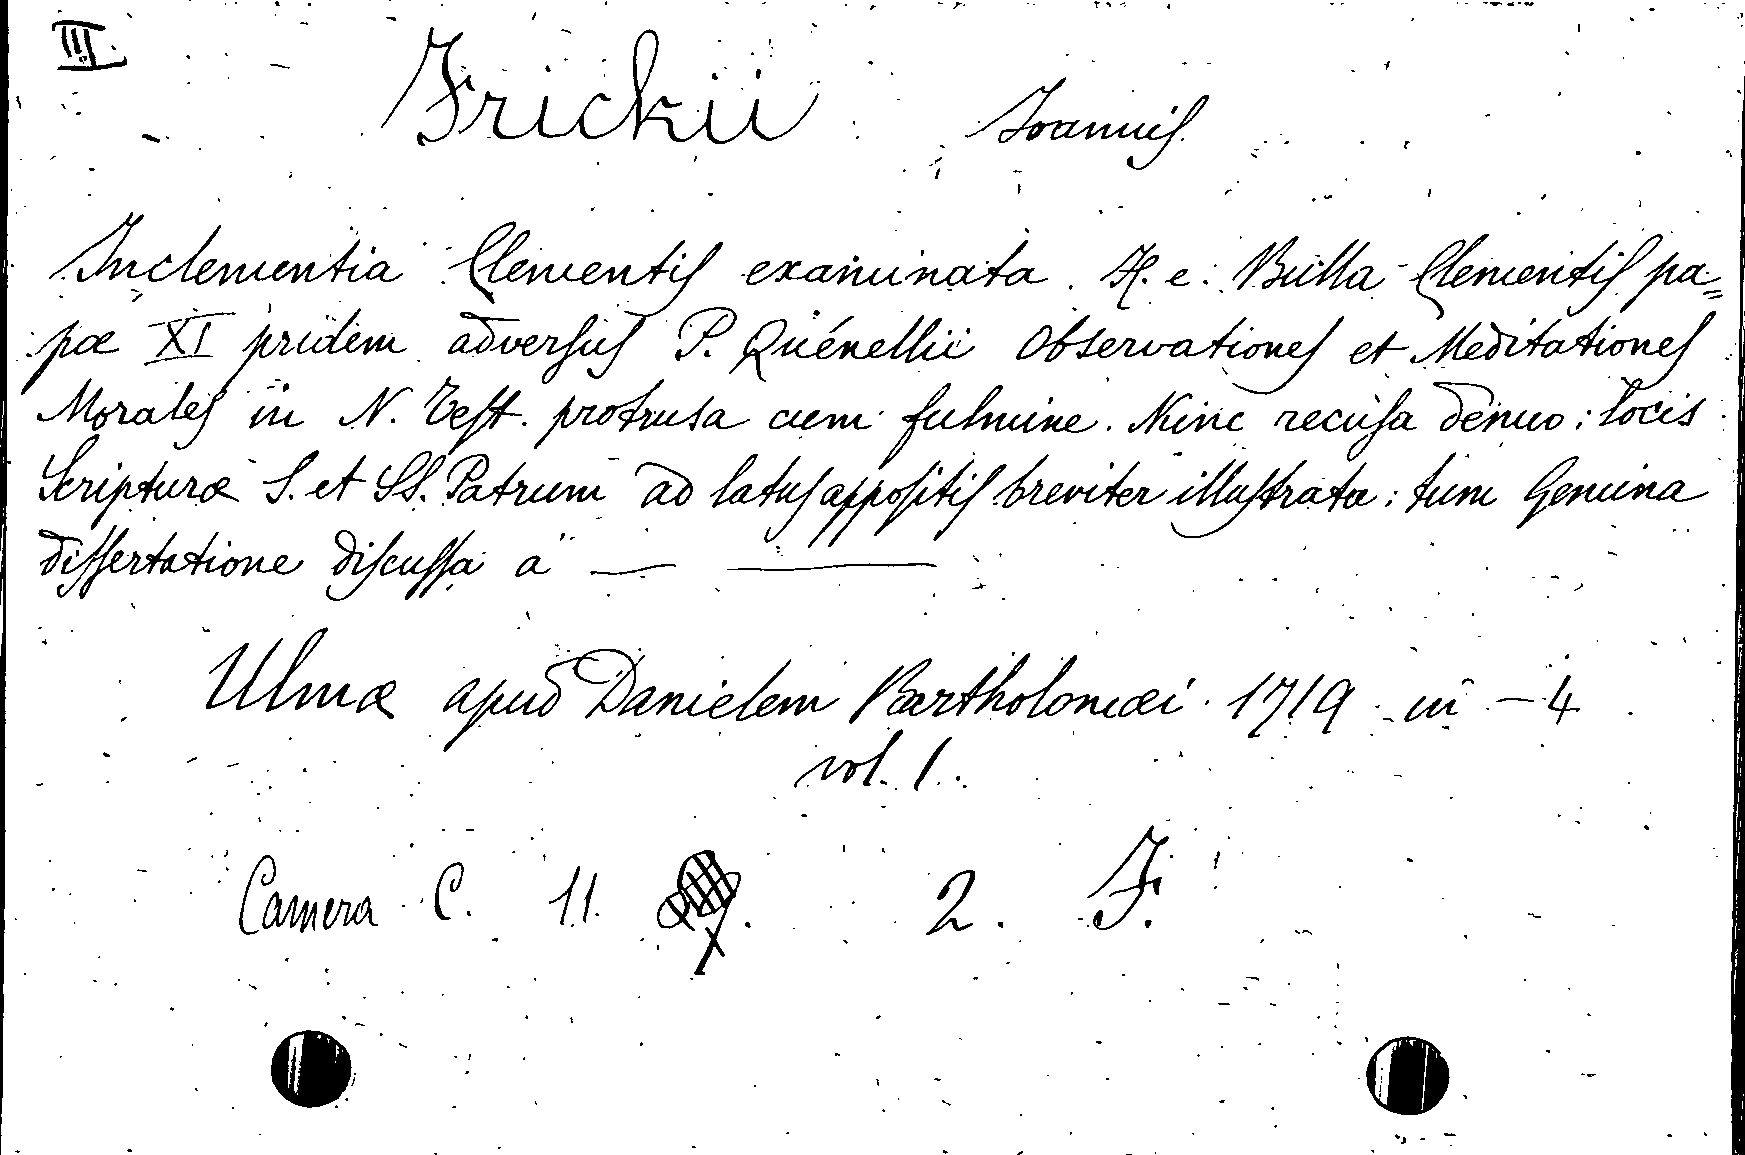 III.
Frickii Joannis.
Inclementia Clementis examinata. H. e. Bulla Clementis pa=
pæ XI pridem adversus P. Quénellii Observationes et Meditationes
Morales in N. Test. protrusa cum fulmine. Nunc recusa denuo: locis
Scripturæ S. et SS. Patrum ad latus appositis breviter illustrata: tum Genuina
dissertatione discussa a — —
Ulmæ apud Danielem Bartholomæi. 1719 in - 4
vol. 1.
Camera C. 11. 2. F.